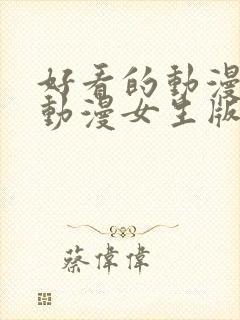 好看的動漫
動漫女生版
蔡偉偉